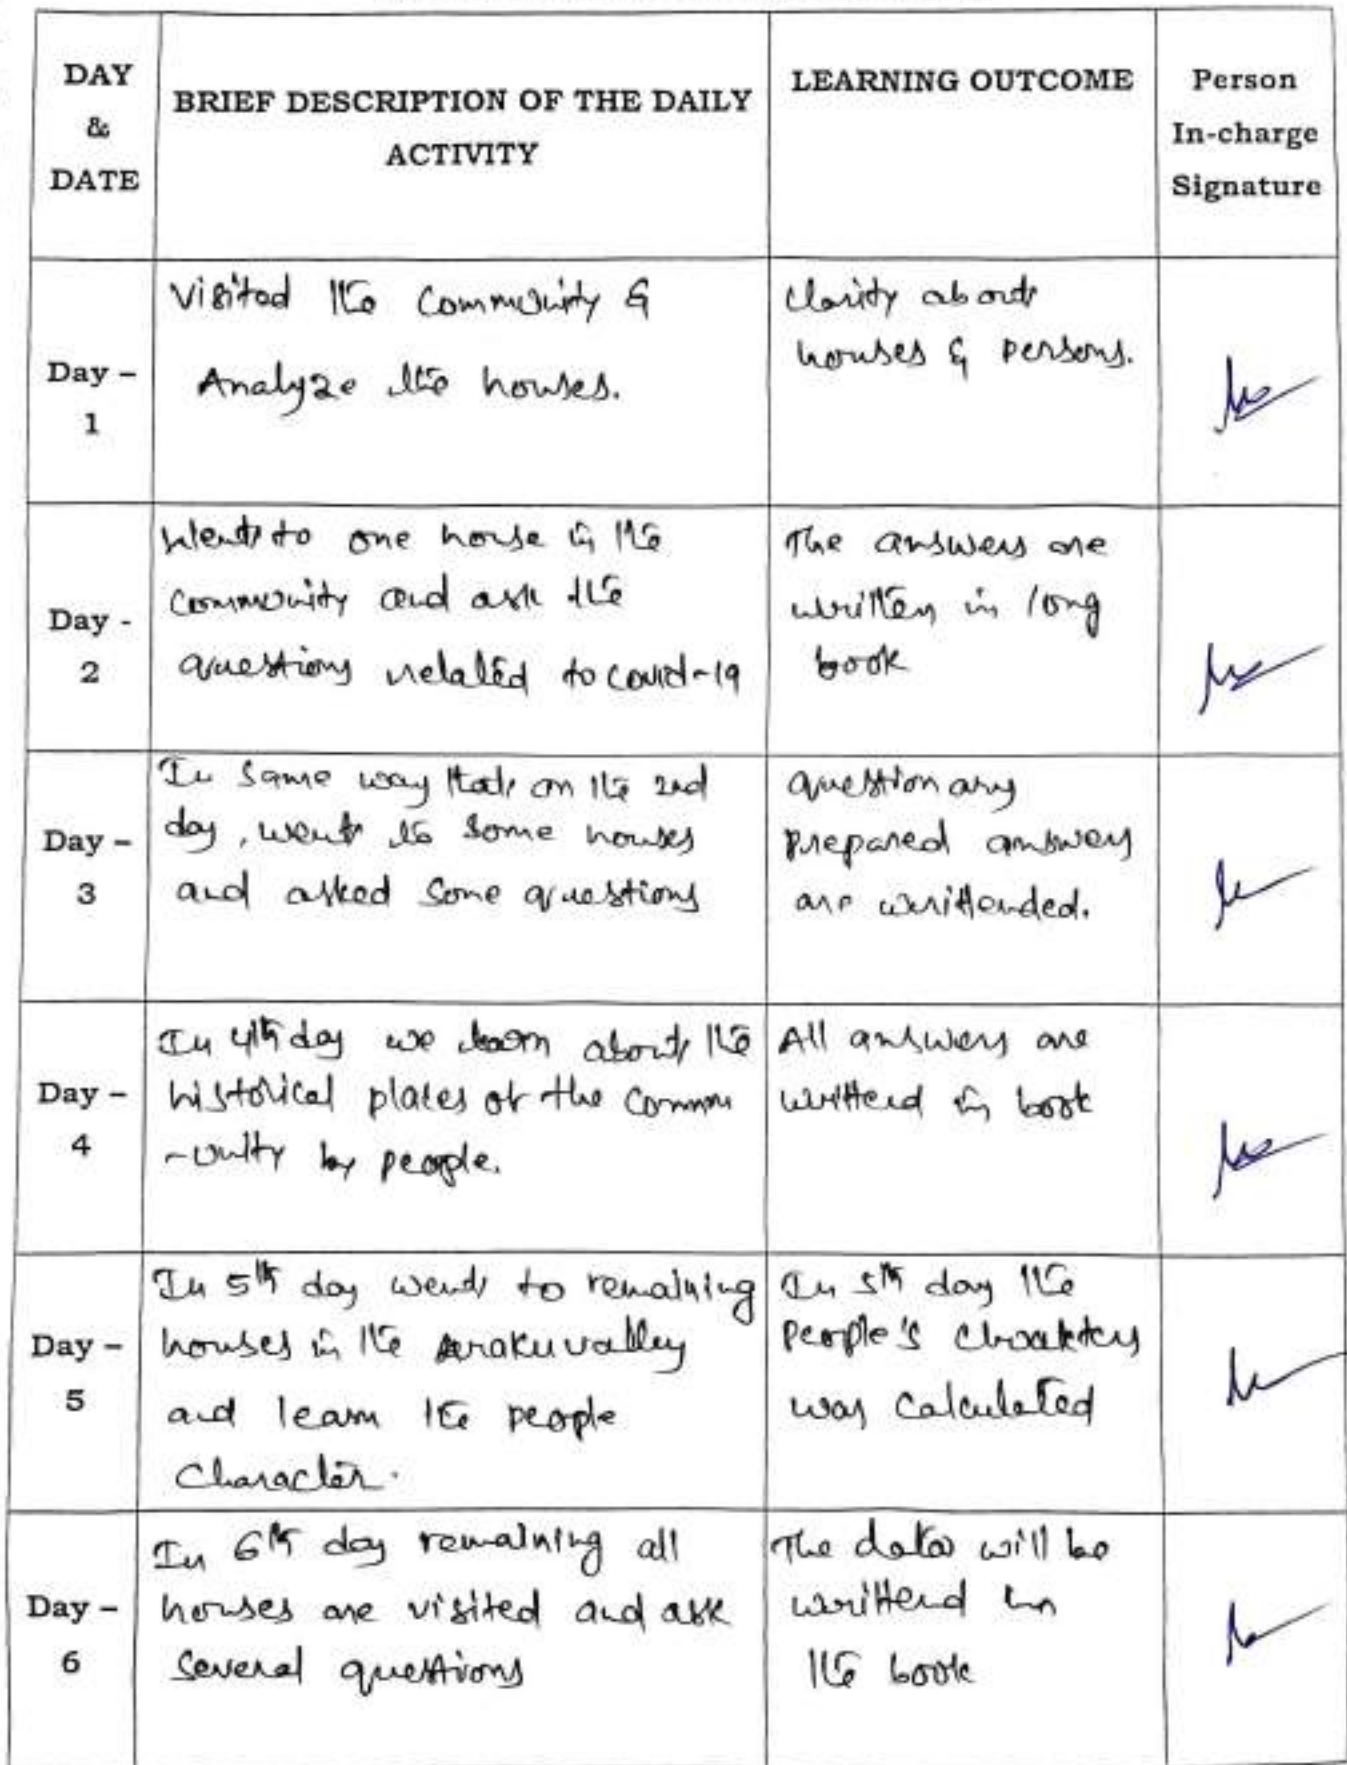 DAY & DATE
BRIEF DESCRIPTION OF THE DAILY ACTIVITY
LEARNING OUTCOME
Person In-charge Signature
Day – 1
Visited the Community &
Analyze the houses.
Clarity about
houses & persons.
Day - 2
Went to one house in the
Community and ask the
questions related to covid-19
The answers are
written in long
book
Day – 3
In same way that on the 2nd
day, went to some houses
and asked some questions
questionary
prepared answers
are writtended.
Day – 4
In 4th day we learn about the
historical places of the Comm
-unity by people.
All answers are
writtend in book
Day – 5
In 5th day went to remaining
houses in the Arakuvalley
and learn the people
Character.
In 5th day the
people's
was calculated
Day – 6
In 6th day remaining all
houses are visited and ask
Several questions
The data will be
writtend in
the book